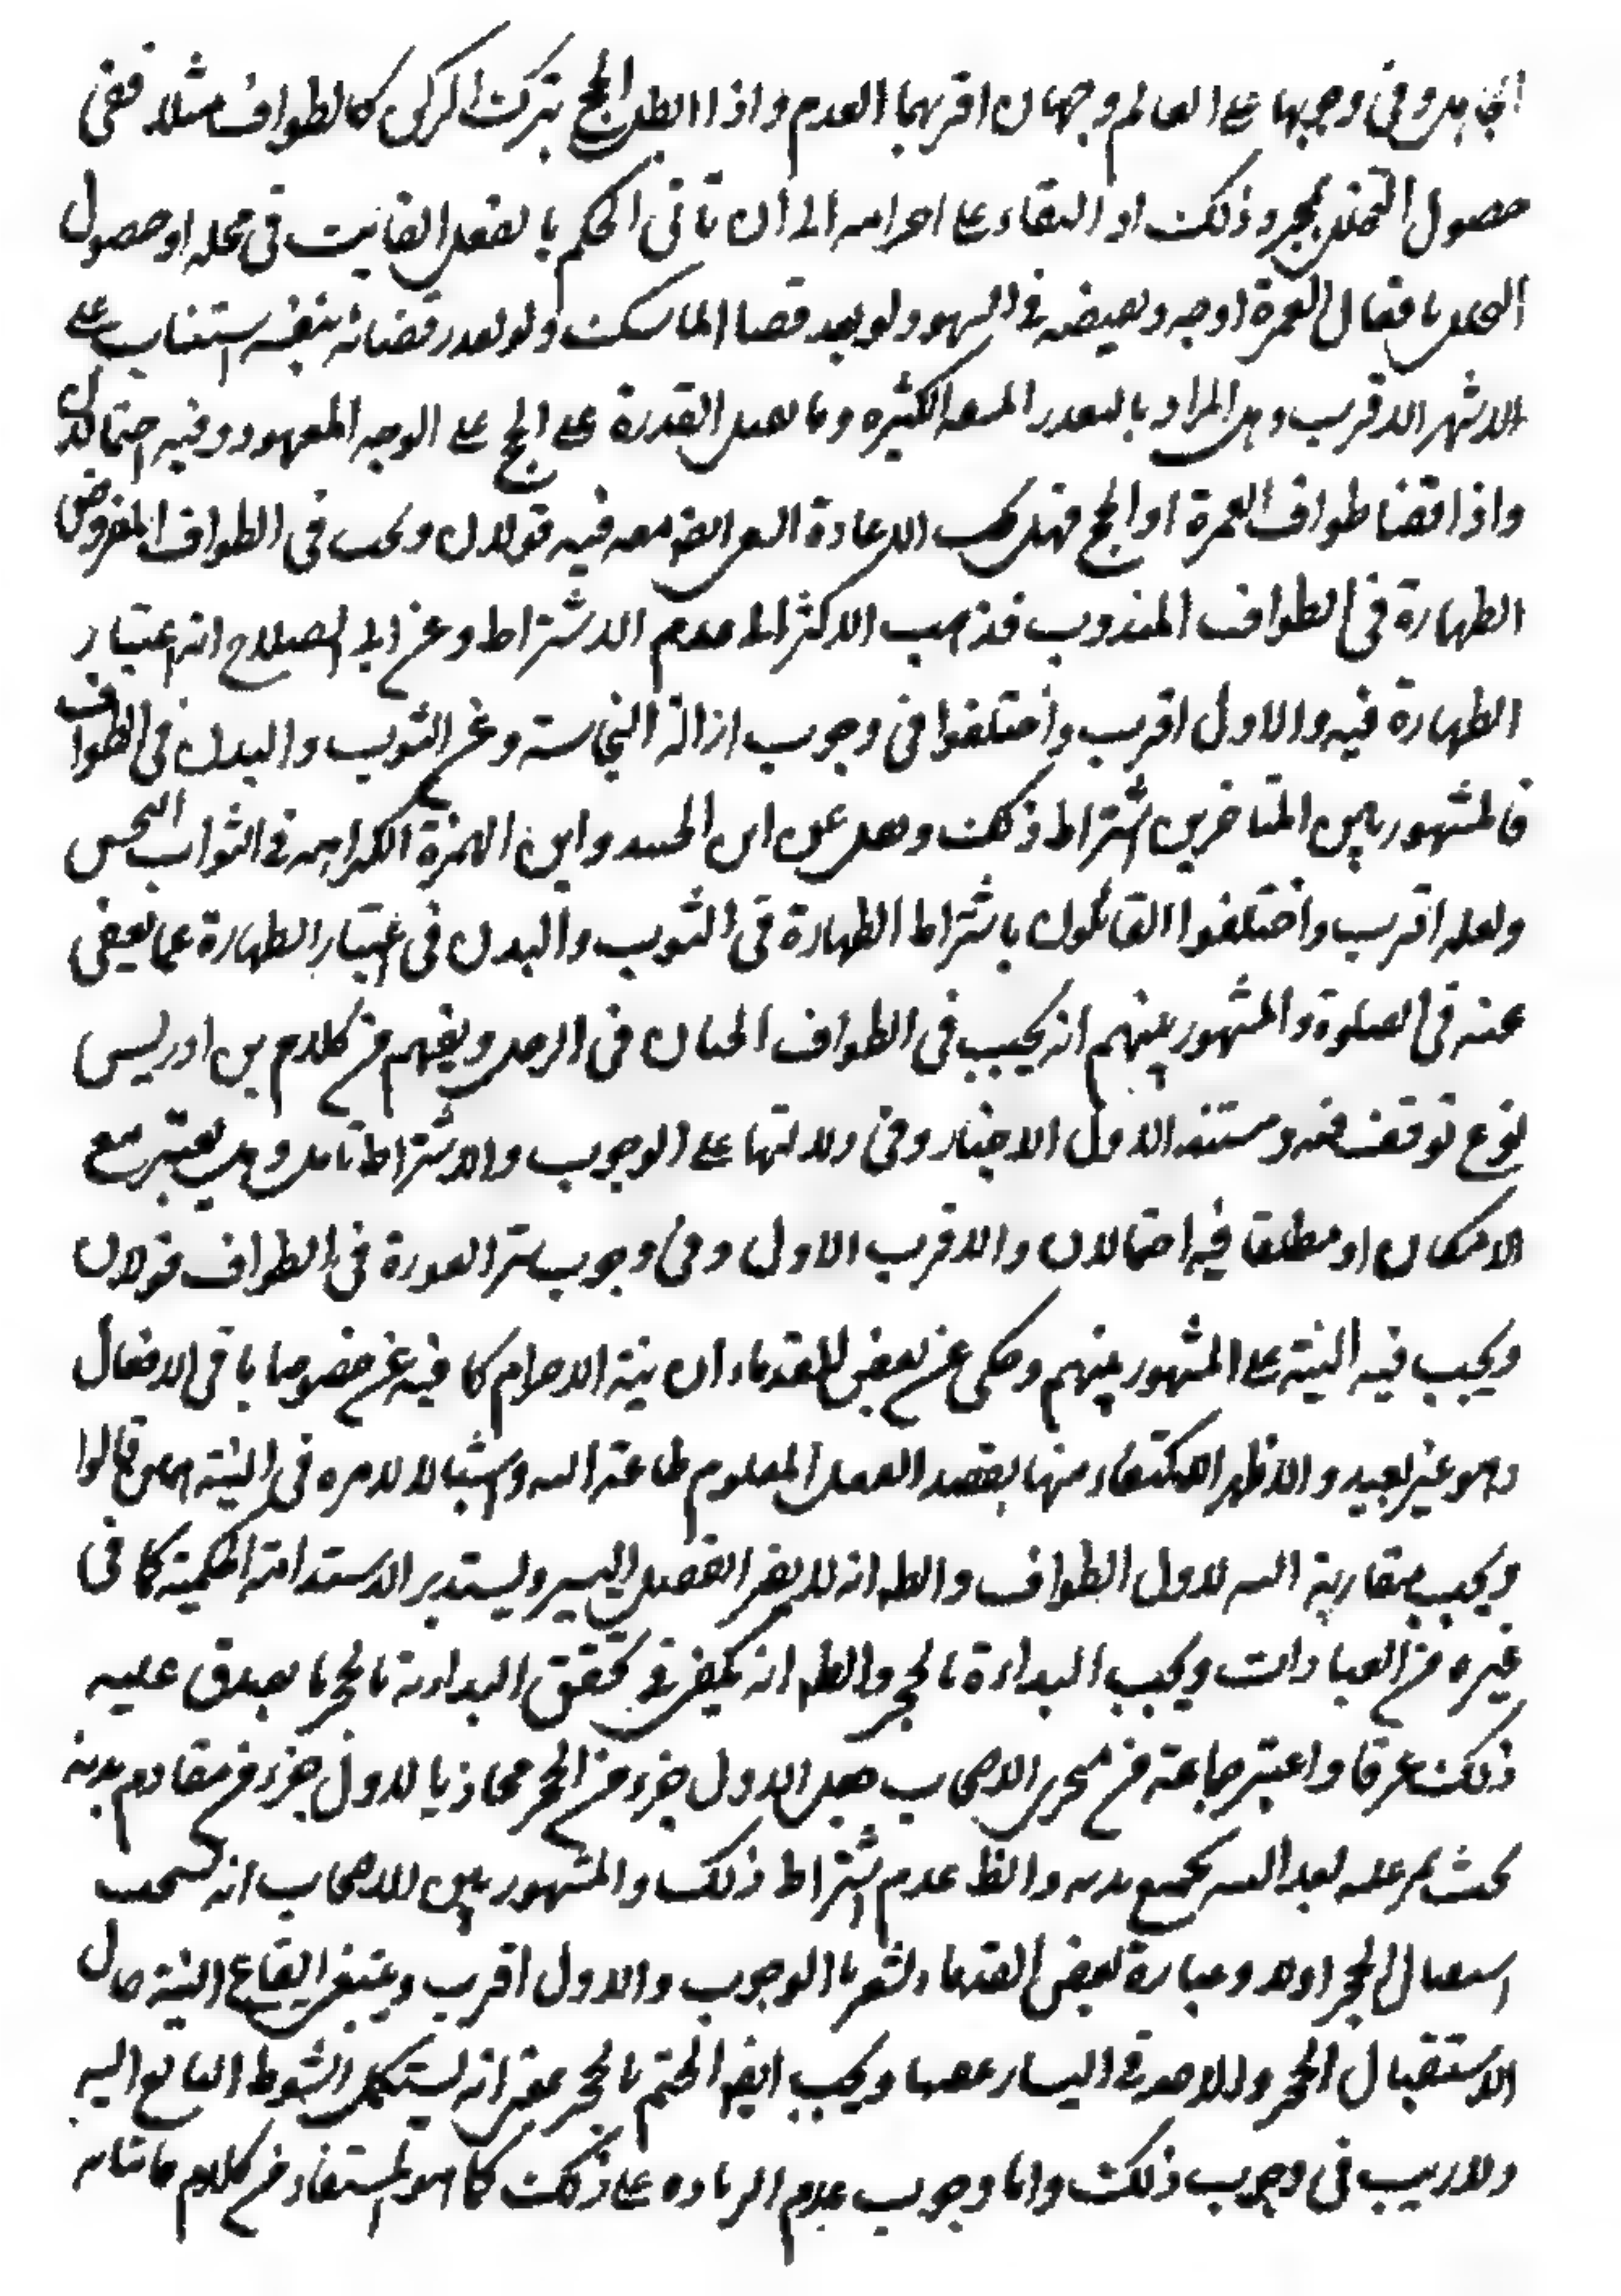 الجاهل وفي وجوبها على العالم وجهان اقربهما العدم واذا ابطل الحج بترك الركن كالطواف مثلا ففي
حصول التحلل بمجرد ذلك او البقاء على احرامه الى ان ياتي الحكم بالفعل الفايت في محله او حصول
التحلل بافعال العمرة اوجه ويقضيه في السهو ولو بعد قضا المناسك ولو تعذر قضائه بنفسه استناب على
الاشهر الاقرب وهل المراد بالتعذر المشقه الكثيره وما يقابل القدرة على الحج على الوجه المعهود وفيه احتمالان
واذا قضا طواف العمرة او الحج فهل يجب الاعادة السعي ايضا معه فيه قولان ويجب في الطواف المفروض
الطهارة في الطواف المندوب فذهب الاكثر الى عدم الاشتراط وعن ابي الصلاح انه اعتبار
الطهارة فيه والاول اقرب واختلفوا في وجوب ازالة النجاسته وعن الثوب والبدن في الطواف
فالمشهور بين المتاخرين اشتراط ذلك ونقل عن ابن الجنيد وابن الحمزة الكراهه في الثواب النجس
ولعله اقرب واختلفوا القائلون باشتراط الطهارة في الثوب والبدن في اعتبار الطهارة عما يعفى
عنه في الصلوة والمشهور بينهم انه يجب في الطواف الختان في الرجل ويفهم من كلام بن ادريس
نوع توقف فيه ومستند الاول الاخبار وفي دلالتها على الوجوب والاشتراط تامل وهل يعتبر مع
الامكان او مطلقا فيه احتمالان والاقرب الاول وفي وجوب ستر العورة في الطواف قولان
ويجب فيه النية على المشهور بينهم وحكى عن بعض القدماء ان نية الاحرام كافيه عن خصوصا باقي الافعال
وهو غير بعيد والاظهر الاكتفاء منها بقصد الفعل المعلوم طاعة الله وامتثالا لامره في النية قالوا
ويجب مقارنة النيه لاول الطواف والظ انه لا يضر الفصل اليسير ويستدير الاستدامة الحكمية كما في
غيره من العبادات ويجب البداءة بالحجر والظ انه يكفي في تحقق البداءة بالحجر ما يصدق عليه
ذلك عرفا واعتبر جماعة من متاخري الاصحاب جعل الاول جزء من الحجر محاذيا لاول جزء من مقادم بدنه
بحيث يمر عليه بعد النيه بجميع بدنه والظ عدم اشتراط ذلك والمشهور بين الاصحاب انه يستحب
استقبال الحجر اولا وعبارة بعض القدماء تشعر بالوجوب والاول اقرب وينبغي ايقاع النية حال
الاستقبال الحجر والاخذ في اليسار عقيبها ويجب ايضا الختم بالحجر بمعنى انه يستكمل الشوط السابع اليه
ولا ريب في وجوب ذلك واما وجوب عدم الزيادة على ذلك كما هو المستفاد من كلام